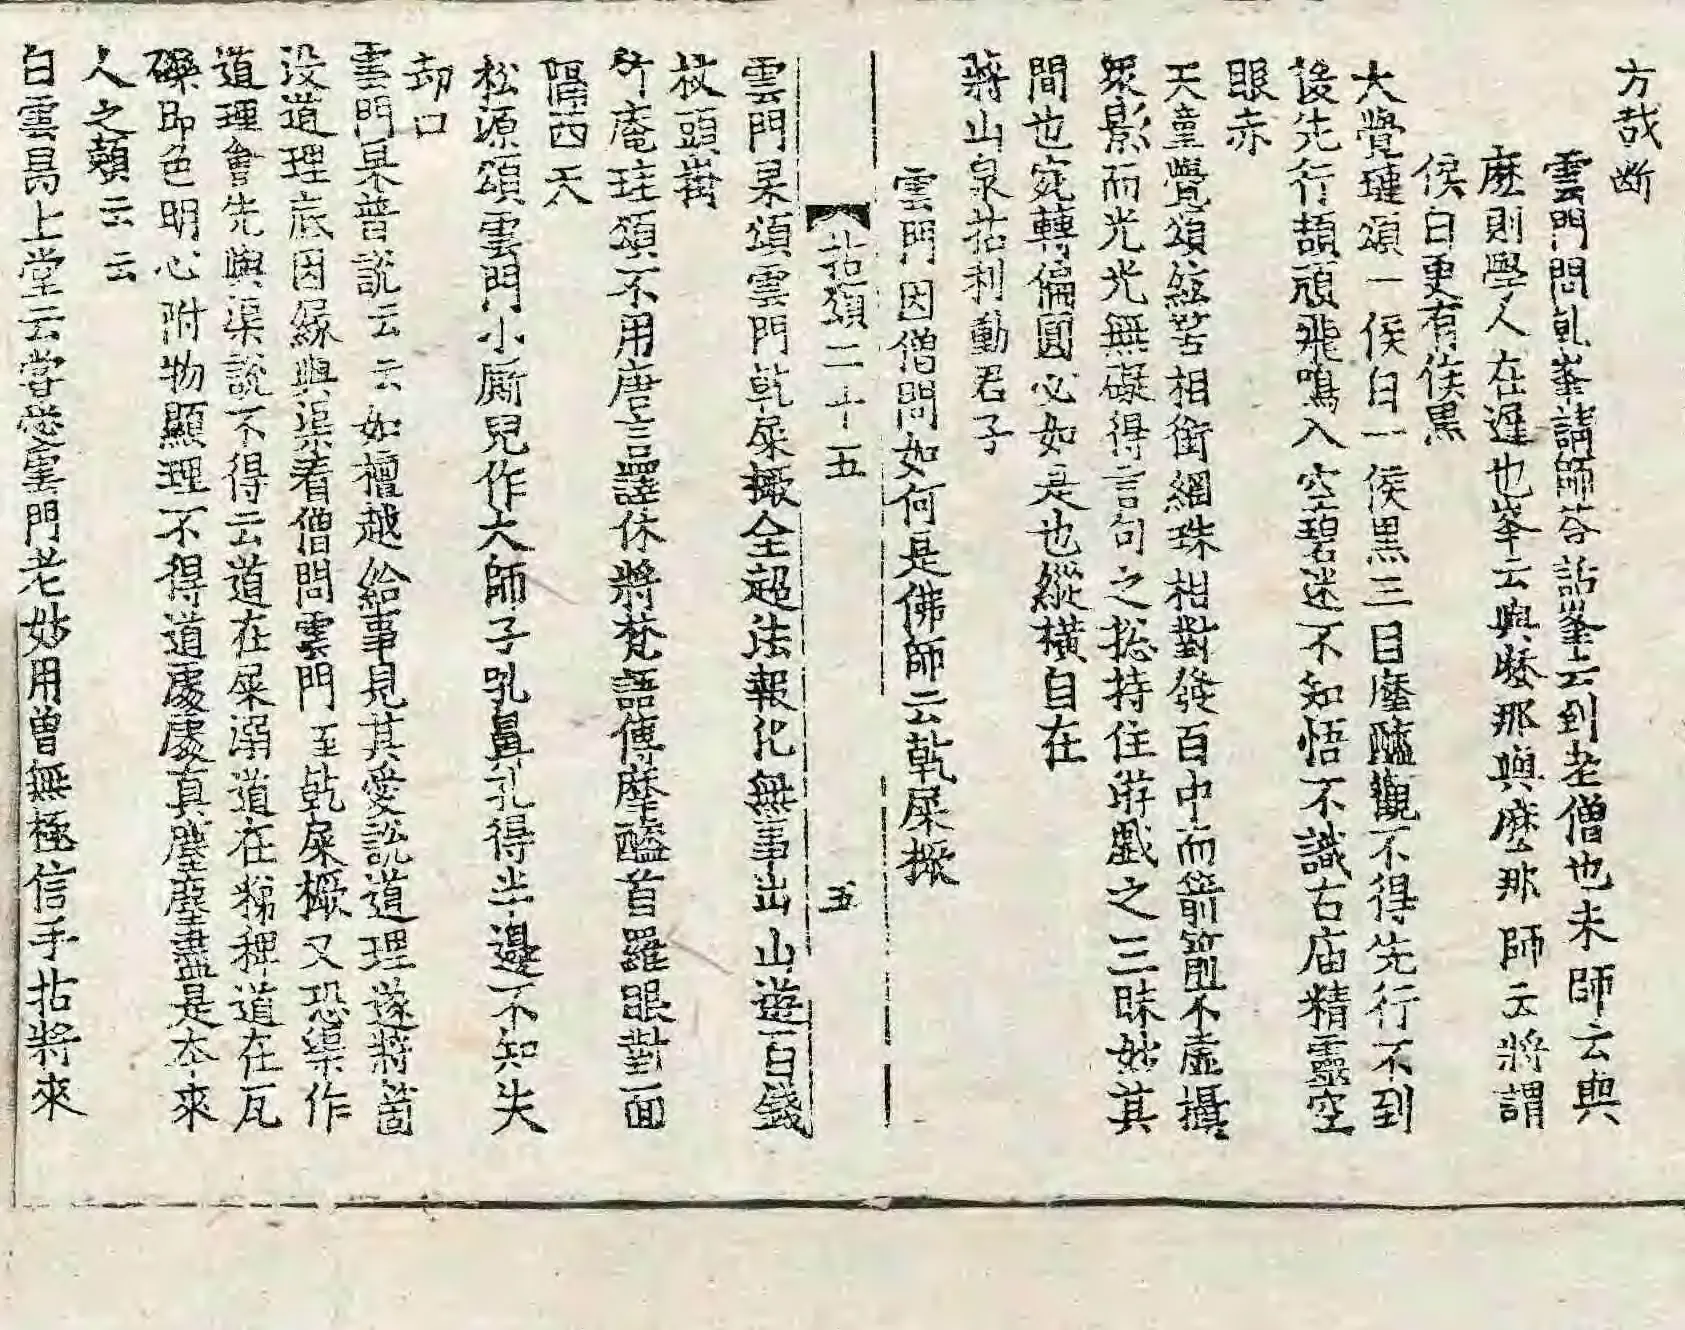 方哉断
雲門問乹峯請師荅話峯云到老僧也未師云與
麽則學人在遲也峯云與麽那與麽那師云將謂
侯白更有侯黒
大覺璉頌一侯白一侯黒三目摩醯觀不得先行不到
後先行頡頏飛鳴入空碧迷不知悟不識古庙精靈空
眼赤
天童覺頌絃筈相銜網珠相對發百中而箭箭不虛攝
衆影而光光無礙得言句之揔持住遊戲之三昧妙其
間也宛轉偏圓必如是也縱橫自在
蔣山泉拈利動君子
雲門因僧問如何是佛師云乹屎橛
拈頌二十五
五
雲門杲頌雲門乹屎橛全超法報化無事出山遊百錢
杖頭掛
竹庵珪頌不用唐言譯休將梵語傳摩醯首羅眼對面
隔西天
松源頌雲門小厮兒作大師子吼鼻孔得半邊不知失
却口
雲門杲普説云云如檀越給事見其愛説道理遂將箇
没道理底因縁與渠看僧問雲門至乹屎橛又恐渠作
道理會先與渠説不得云道在屎溺道在稊稗道在瓦
礫即色明心附物顯理不得道處處真塵塵盡是夲來
人之類云云
白雲昺上堂云嘗愛雲門老妙用曽無極信手拈將來